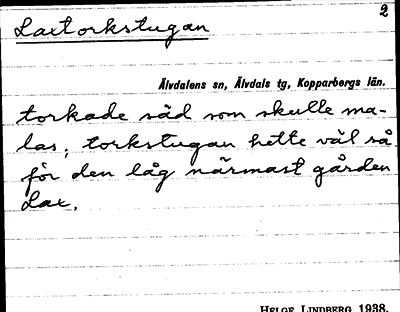 2
Laxtorkstugan
Älvdalens sn, Älvdals tg, Kopparbergs län.
torkade säd som skulle ma-
las; torkstugan hette väl så
för den låg närmast gården
Lax.
HELGE LINDBERG 1938.